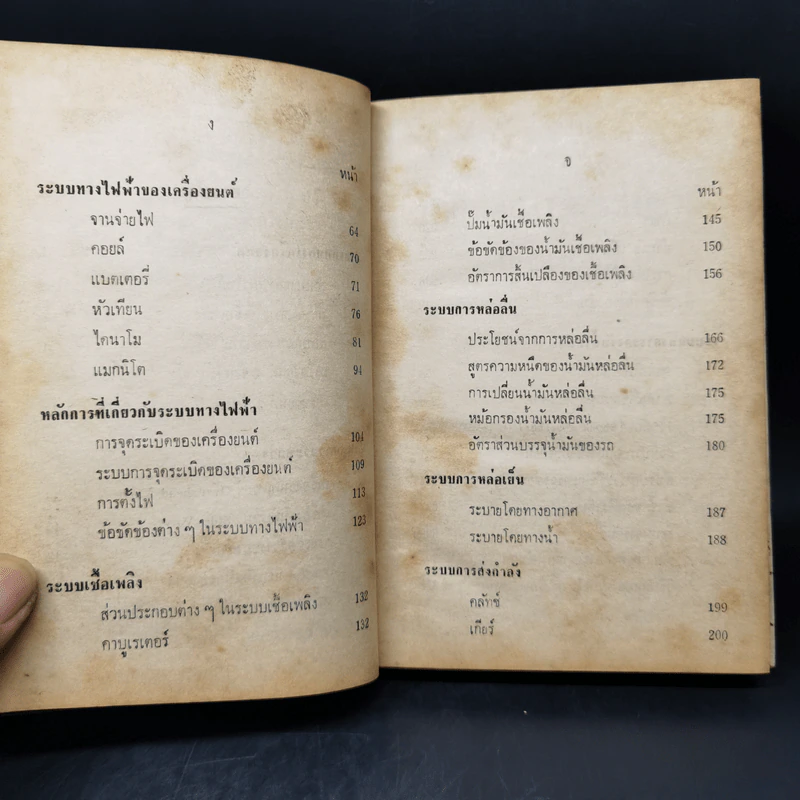 ง
หน้า
ระบบทางไฟฟ้าของเครื่องยนต์
จานจ่ายไฟ 64
คอยล์ 70
แบตเตอรี่ 71
หัวเทียน 76
ไดนาโม 81
แมกนิโต 94
หลักการที่เกี่ยวกับระบบทางไฟฟ้า
การจุดระเบิดของเครื่องยนต์ 104
ระบบการจุดระเบิดของเครื่องยนต์ 109
การตั้งไฟ 113
ข้อขัดข้องต่าง ๆ ในระบบทางไฟฟ้า 123
ระบบเชื้อเพลิง
ส่วนประกอบต่าง ๆ ในระบบเชื้อเพลิง 132
คาบูเรเตอร์ 132
จ
หน้า
ปั๊มน้ำมันเชื้อเพลิง 145
ข้อขัดข้องของน้ำมันเชื้อเพลิง 150
อัตราการสิ้นเปลืองของเชื้อเพลิง 156
ระบบการหล่อลื่น
ประโยชน์จากการหล่อลื่น 166
สูตรความหนืดของน้ำมันหล่อลื่น 172
การเปลี่ยนน้ำมันหล่อลื่น 175
หม้อกรองน้ำมันหล่อลื่น 175
อัตราส่วนบรรจุน้ำมันของรถ 180
ระบบการหล่อเย็น
ระบายโดยทางอากาศ 187
ระบายโดยทางน้ำ 188
ระบบการส่งกำลัง
คลัทช์ 199
เกียร์ 200